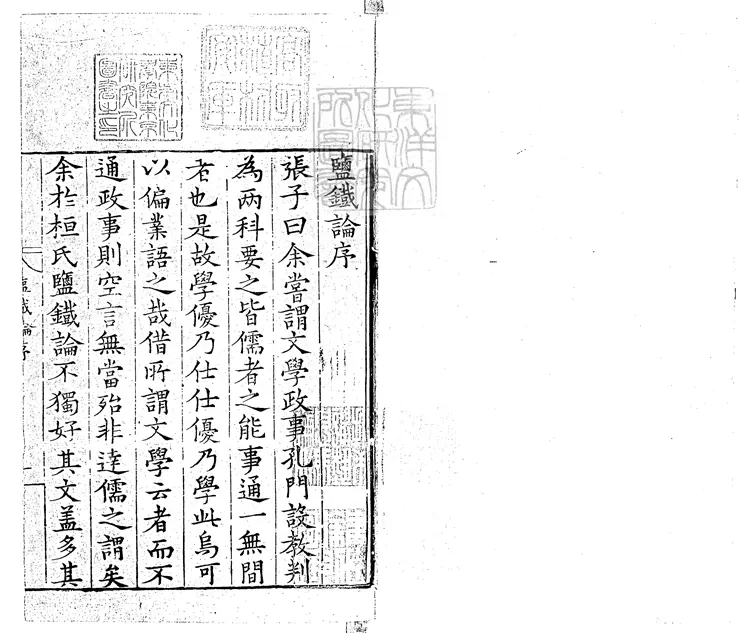 鹽鐵論序
張子曰余嘗謂文學政事孔門設教判
為兩科要之皆儒者之能事通一無間
者也是故學優乃仕仕優乃學此烏可
以偏業語之哉借所謂文學云者而不
通政事則空言無當殆非達儒之謂矣
余於桓氏鹽鐵論不獨好其文盖多其
鹽鐵論序